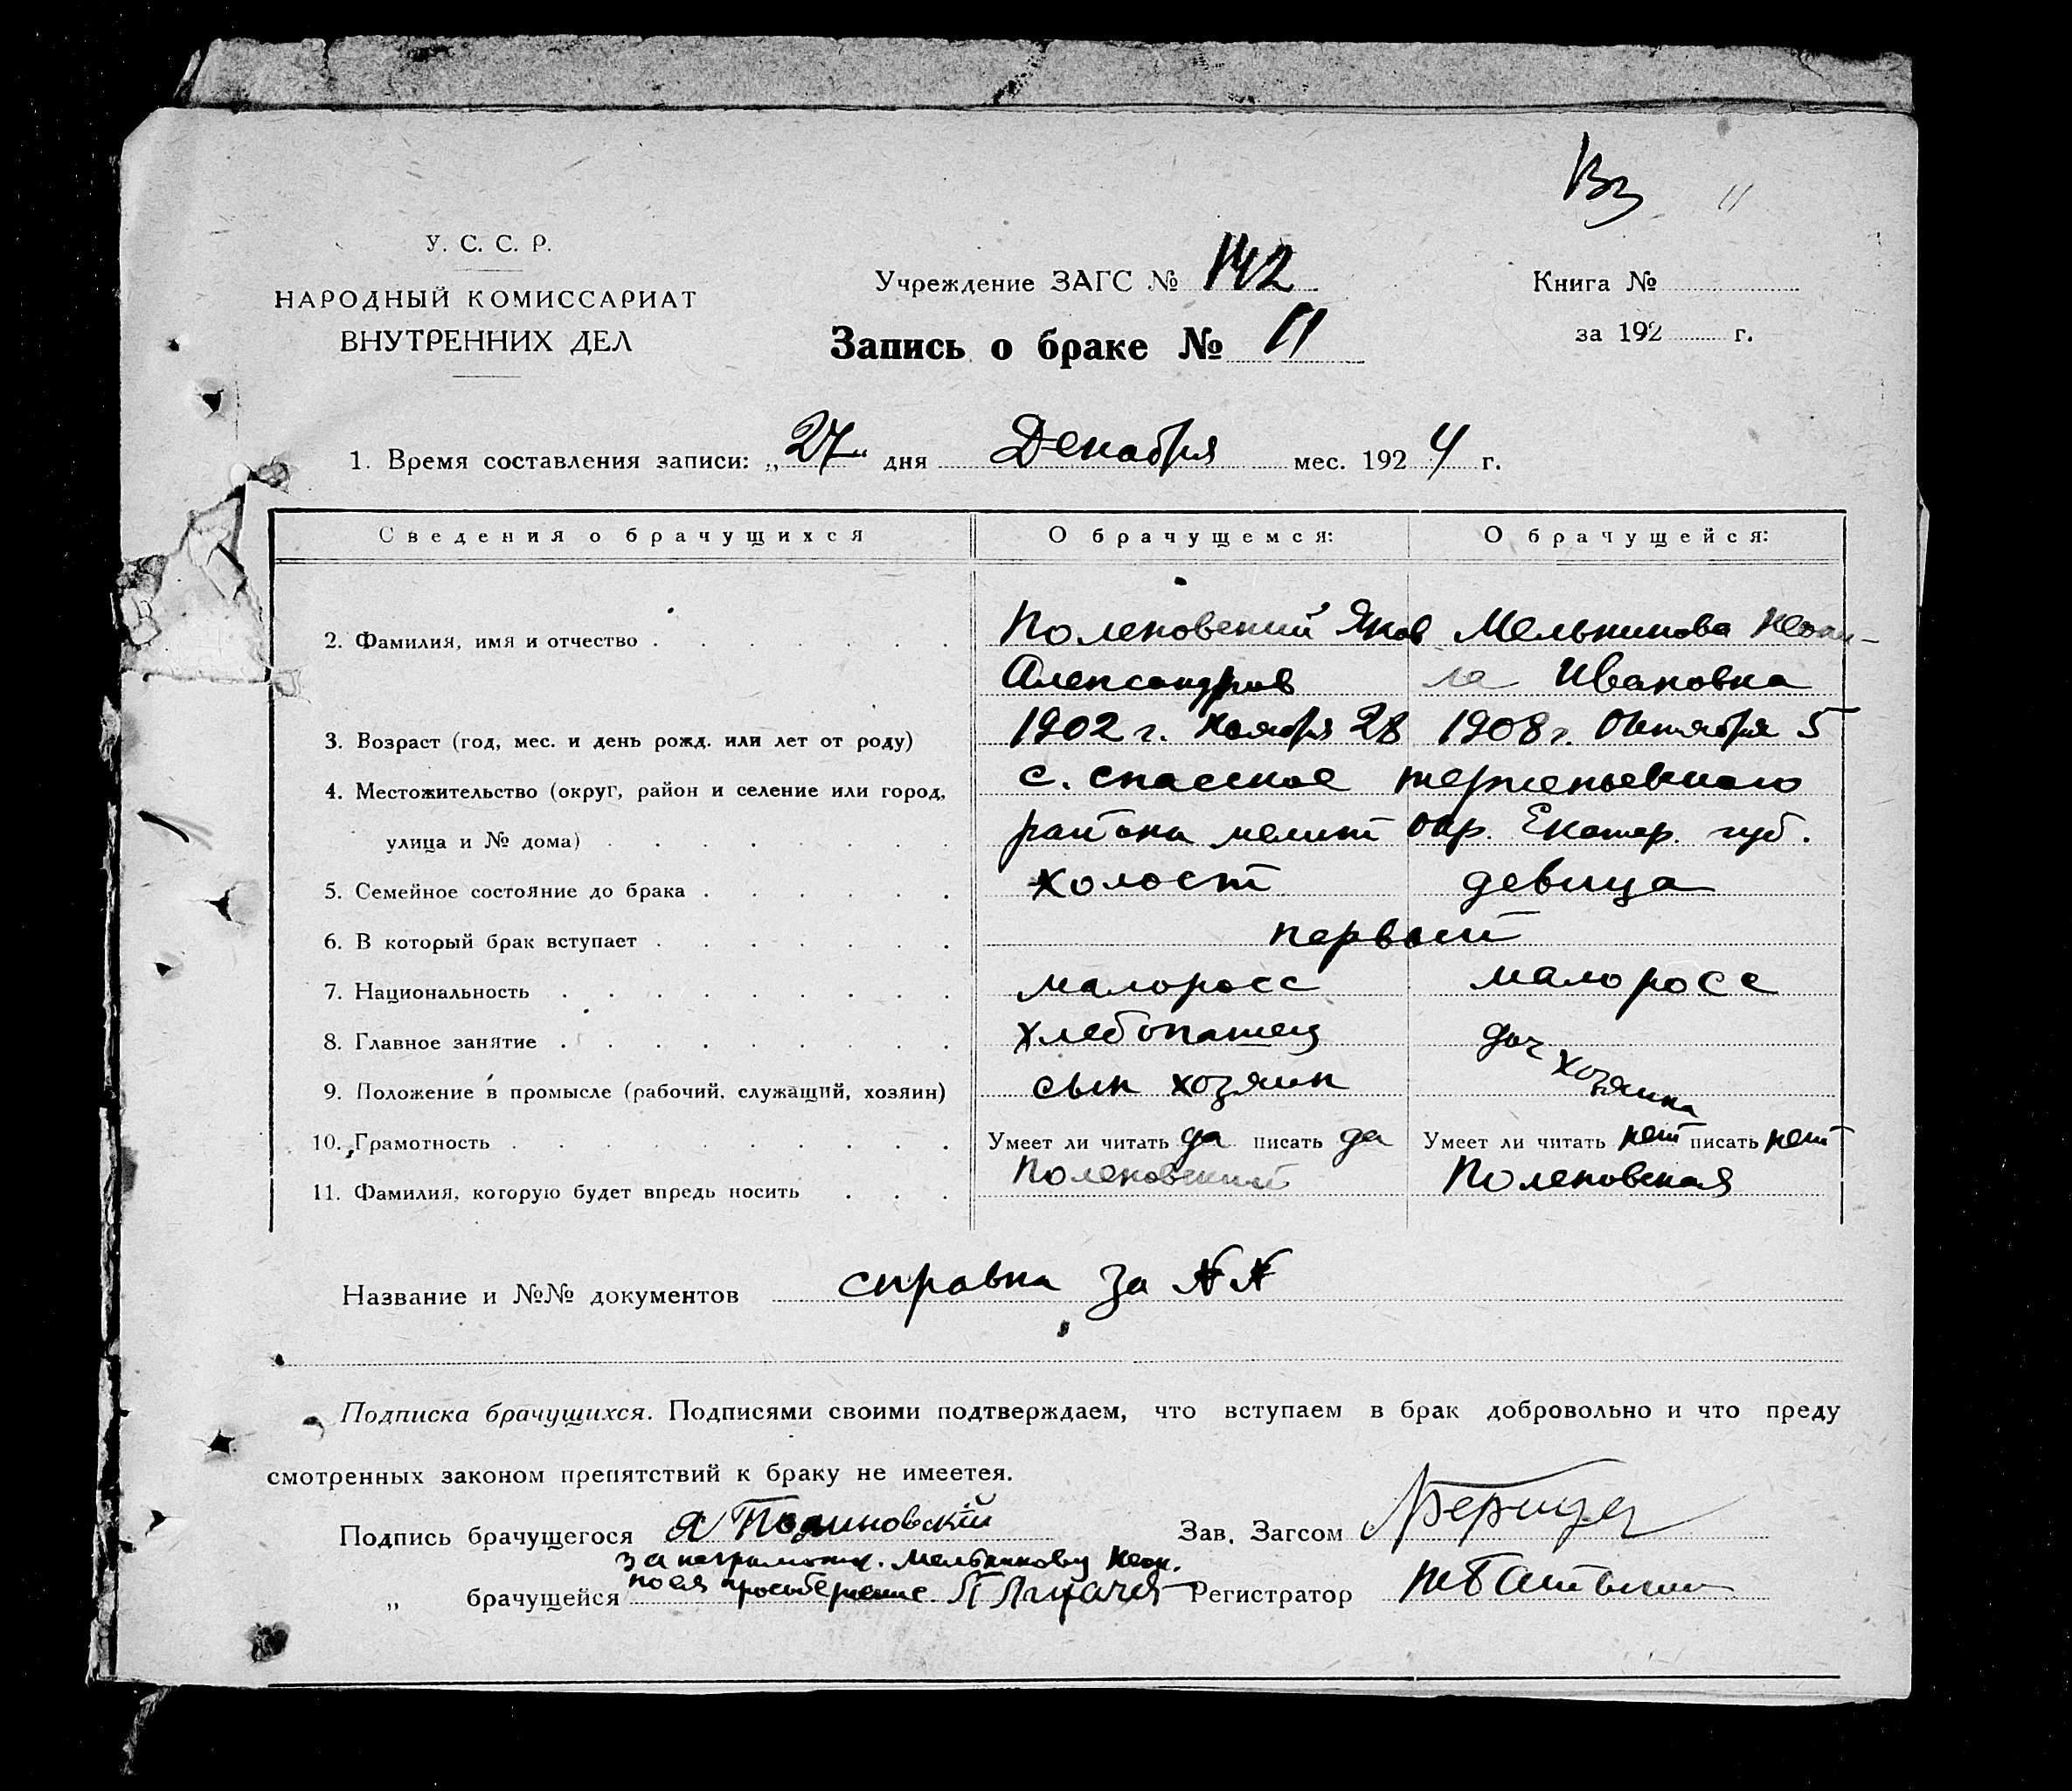 Вз 11
У. С. С. Р.
НАРОДНЫЙ КОМИССАРИАТ
ВНУТРЕННИХ ДЕЛ
Учреждение ЗАГС № 142
Запись о браке № 11
Книга №
за 192 г.
1. Время составления записи: „27“ дня Декабря мес. 1924 г.
Сведения о брачущихся О брачущемся: О брачущейся:
2. Фамилия, имя и отчество Поленовский Яков Мельникова
Александров Ивановна
3. Возраст (год, мес. и день рожд. или лет от роду) 1902 г. Ноября 28 1908 г. Октября 5
4. Местожительство (округ, район и селение или город, с. спасское терпеньевского
улица и № дома) района мелит окр. Екатер. губ.
5. Семейное состояние до брака холост девица
6. В который брак вступает первый
7. Национальность малоросс малоросс
8. Главное занятие хлебопашец доч
9. Положение в промысле (рабочий, служащий, хозяин) сын хозяин хозяина
10. Грамотность Умеет ли читать да писать да Умеет ли читать нет писать нет
11. Фамилия, которую будет впредь носить Поленовский Поленовская
Название и №№ документов справка за №№
Подписка брачущихся. Подписями своими подтверждаем, что вступаем в брак добровольно и что преду
смотренных законом препятствий к браку не имеется.
Подпись брачущегося Я Полиновскій Зав. Загсом
за неграмотн. Мельникову
„ брачущейся по ея Регистратор